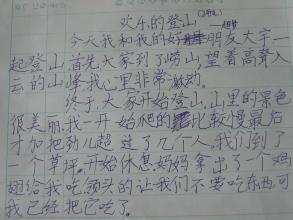 欢乐的登山
今天我和我的好朋友大宇一
起登山,首先大家到了崂山,望着高耸入
云的山峰,我心里非常激动。
终于,大家开始登山,山里的景色
很美丽,我一开始爬的比较慢,最后
才加把劲儿超过了几个人,我们到了
一个草坪,开始休息,妈妈拿出了一个鸡
翅给我吃,领头的让我们不要吃东西,可
我已经把它吃了。